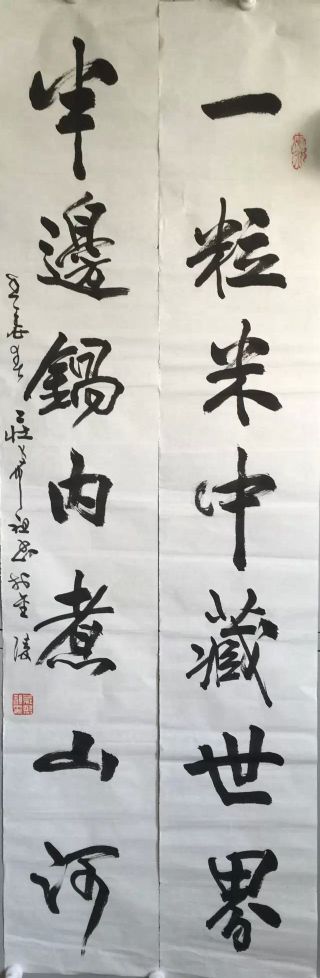 一粒米中藏世界
半邊鍋内煮山河